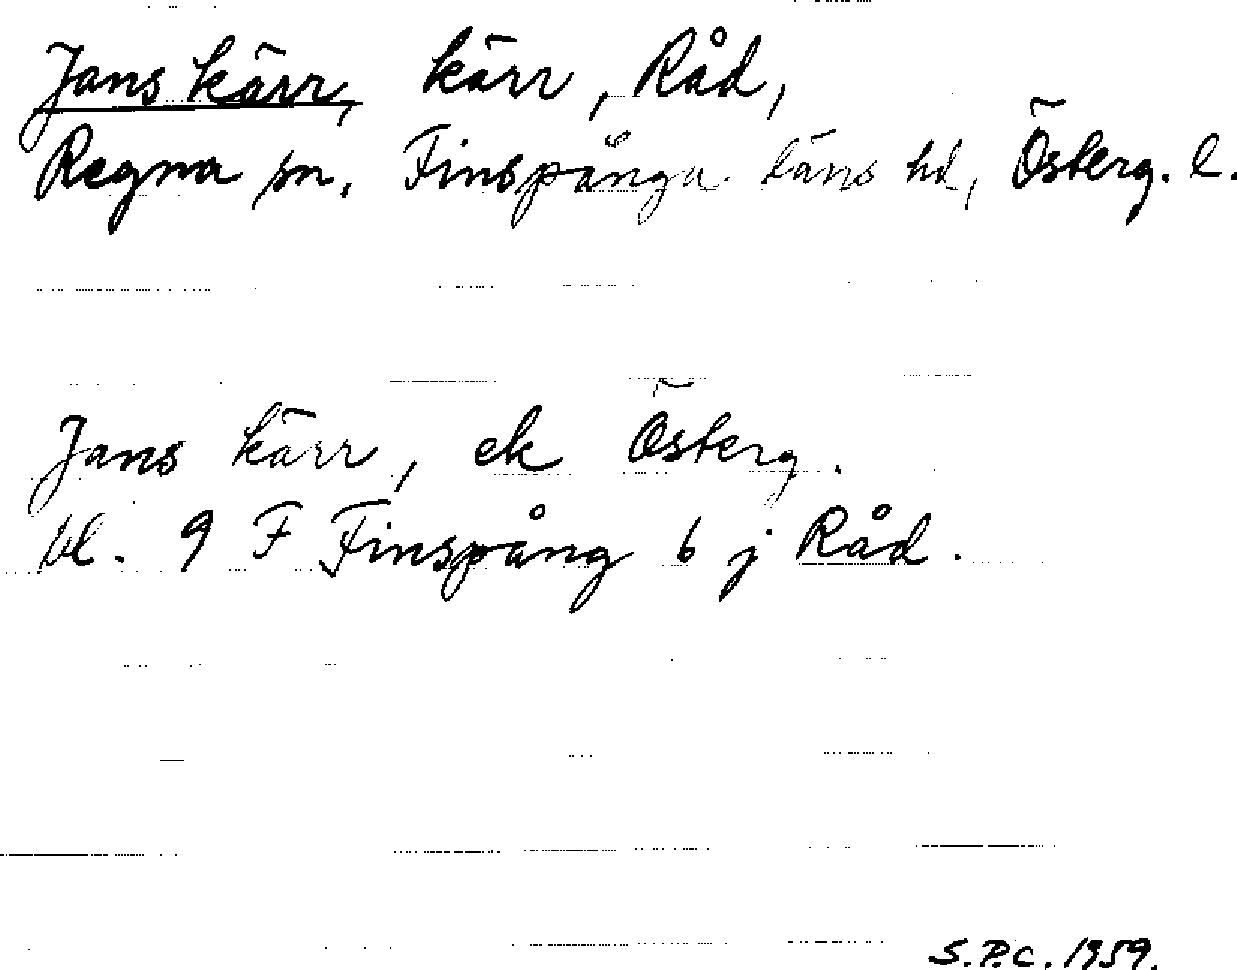 Jans kärr, kärr, Råd,
Regna sn. Finspånga läns hd, Österg. l.
Jans kärr, ek Österg.
bl. 9 F Finspång 6 j Råd.
S.P.C. 1959.